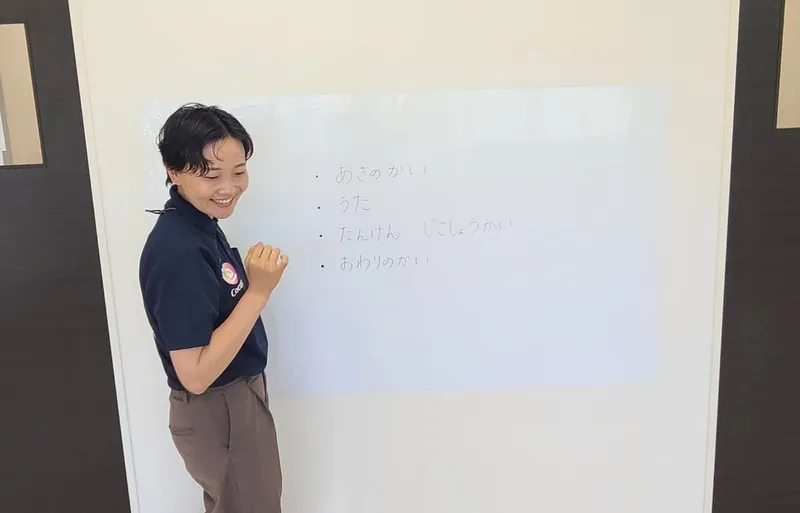 ・あさのかい
・うた
・たんけん じこしょうかい
・おわりのかい